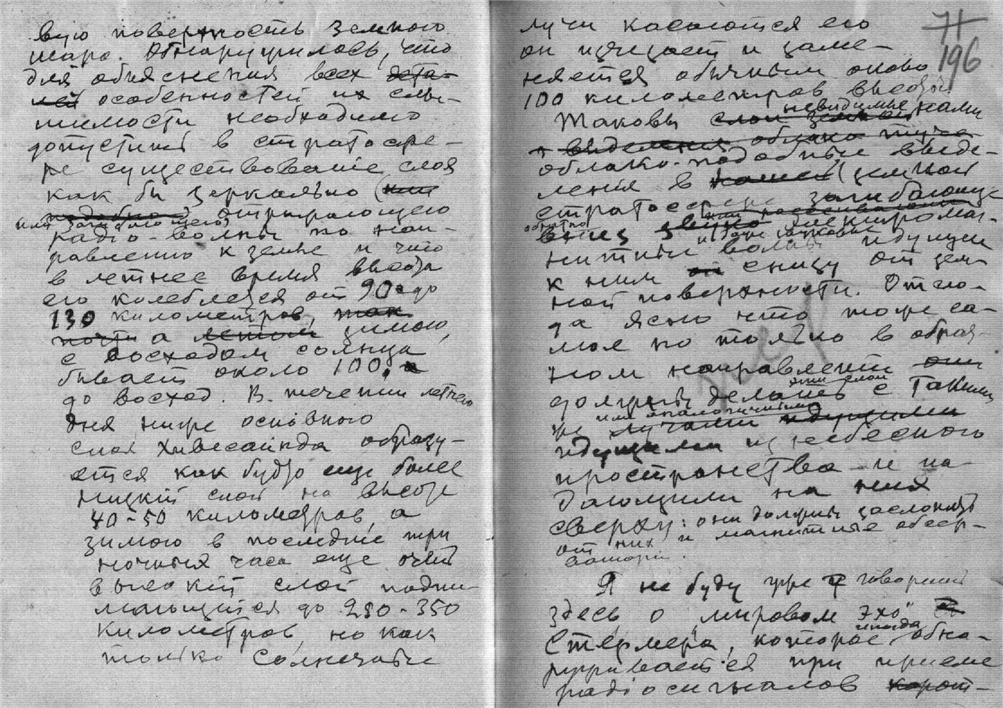 вую поверхность земного
шара. Обнаружилось, что
для объяснения всех дета-
лей особенностей их слы-
шимости необходимо
допустить в стратосфе-
ре существование слоя
как бы зеркально (или
подобно) отражающего
радіо-волны по нап-
равлению к земле и что
в летнее время высота
его колеблется от 90 до
130 километров, так
почти а летом зимою,
с восходом солнца
бывает около 100, а
до восход. В течении летнего
дня ниже основного
слоя Хивисайда образу-
ется как будто еще более
низкій слой на высоте
40-50 километров, а
зимою в последніе три
ночныя часа еще очень
высокій слой подни-
мающийся до 250-350
километров, но как
только солнечные
71
196
лучи касаются его
он исчезает и заме-
няется обычным около
100 километров высотой
невидимые нами
Таковы слои
облако-подобные выде-
ления в земной
стратосфере загибающие
обратно вниз электромаг-
нитные волны идущие
к ним снизу от зем-
ной поверхности. Отсю-
да ясно что тоже са-
мое но только в обрат-
ном направлении они
эти слои
должны делать с таким
или аналогичными
же лучами идущими
идущими из небесного
пространства и па-
дающими на них
сверху: они должны заслонять
от них и магнитные обсер-
ваторіи.
Я не буду уже говорить
здесь о „мировом эхо"
иногда
Стермера, которое обна-
руживается при приеме
радіосигналов корот-